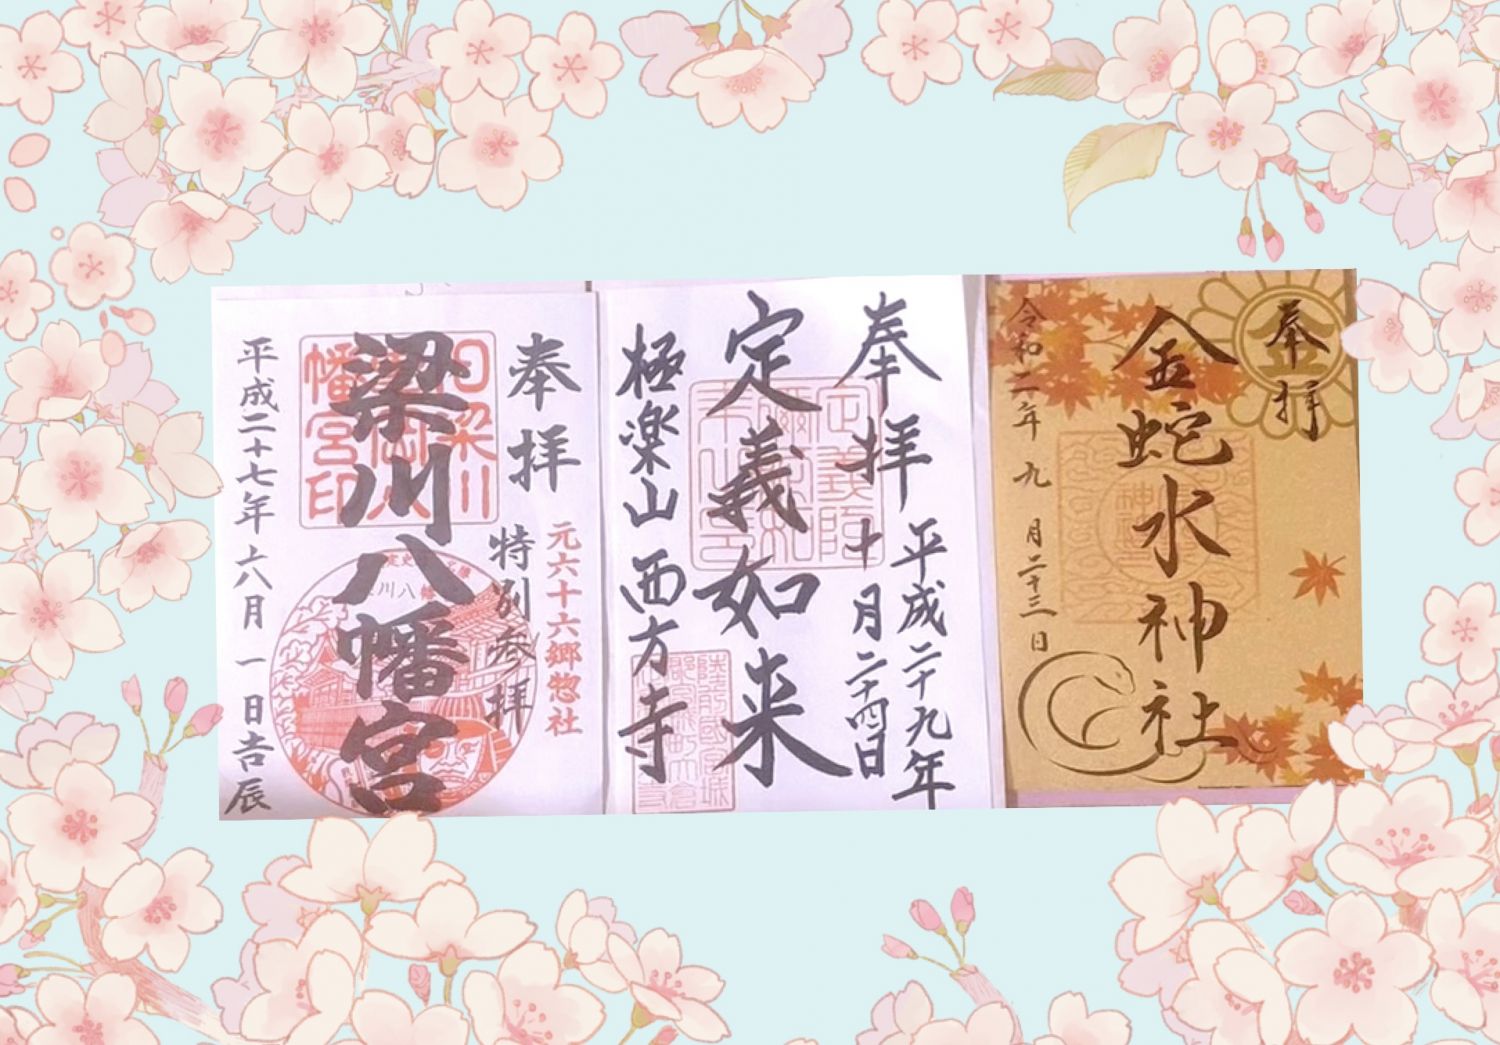 奉拝
特別参拝
元六十六郷惣社
梁川八幡宮
平成二十七年六月一日吉辰
奉拝
平成二十九年
十月二十四日
定義如来
極楽山西方寺
奉拝
金蛇水神社
令和二年九月二十三日